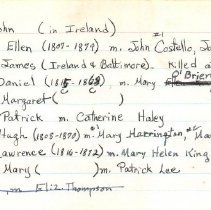 John (in Ireland)
Ellen (1807-1874) m. #1 John Costello, Jo
James (Ireland & Baltimore). Killed a
Daniel (1815-1868) m. Mary O'Brien
Margaret ( )
Patrick m. Catherine Haley
Hugh (1808-1870) m. #1 Mary Harrington, #2 Ma
Lawrence (1816-1872) m. Mary Helen King
Mary ( ) m. Patrick Lee
m Eliz. Thompson